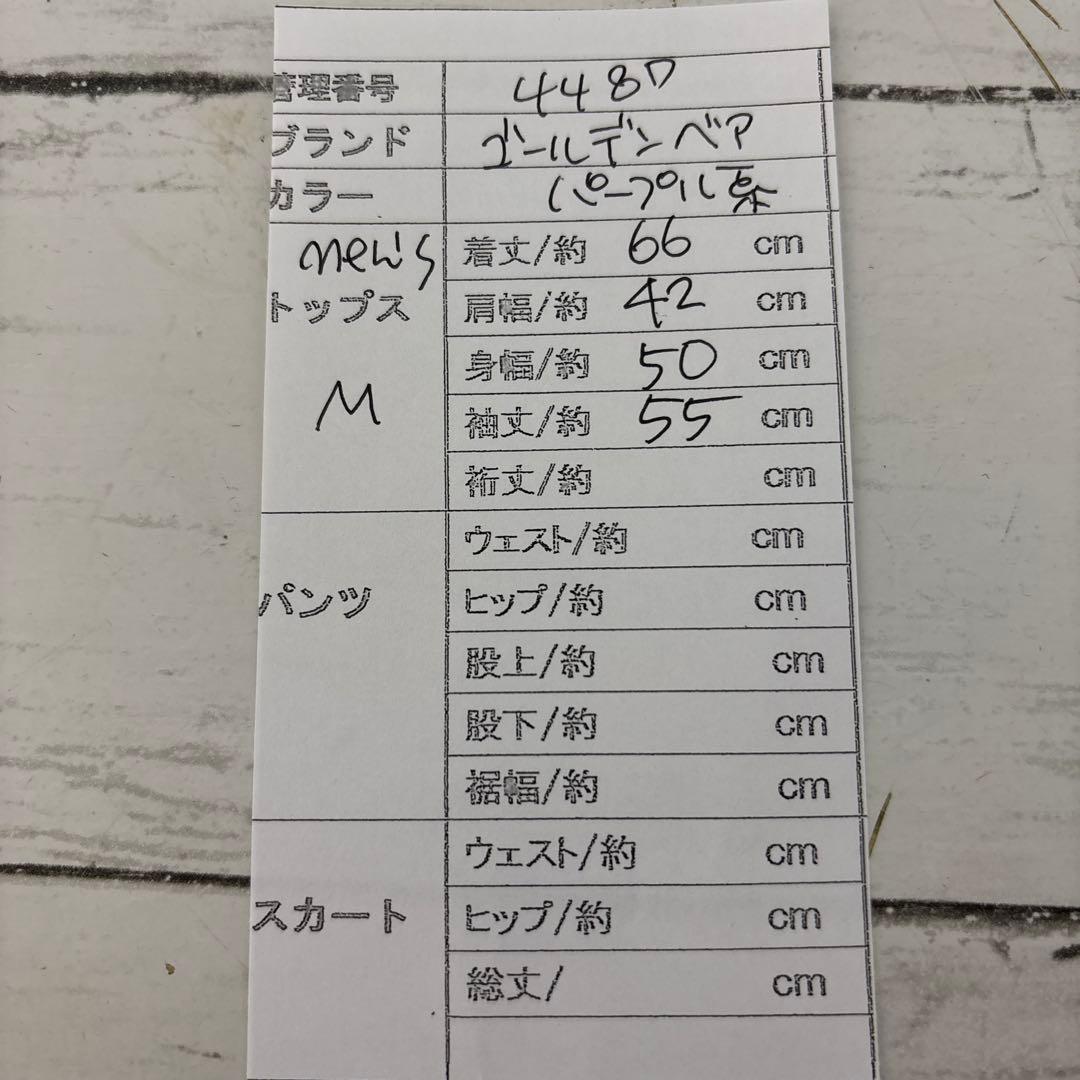 管理番号 4487
ブランド ゴールデンベア
カラー パープル系
men's
トップス
M
着丈/約 66 cm
肩幅/約 42 cm
身幅/約 50 cm
袖丈/約 55 cm
裄丈/約 cm
パンツ
ウェスト/約 cm
ヒップ/約 cm
股上/約 cm
股下/約 cm
裾幅/約 cm
スカート
ウェスト/約 cm
ヒップ/約 cm
総丈/ cm